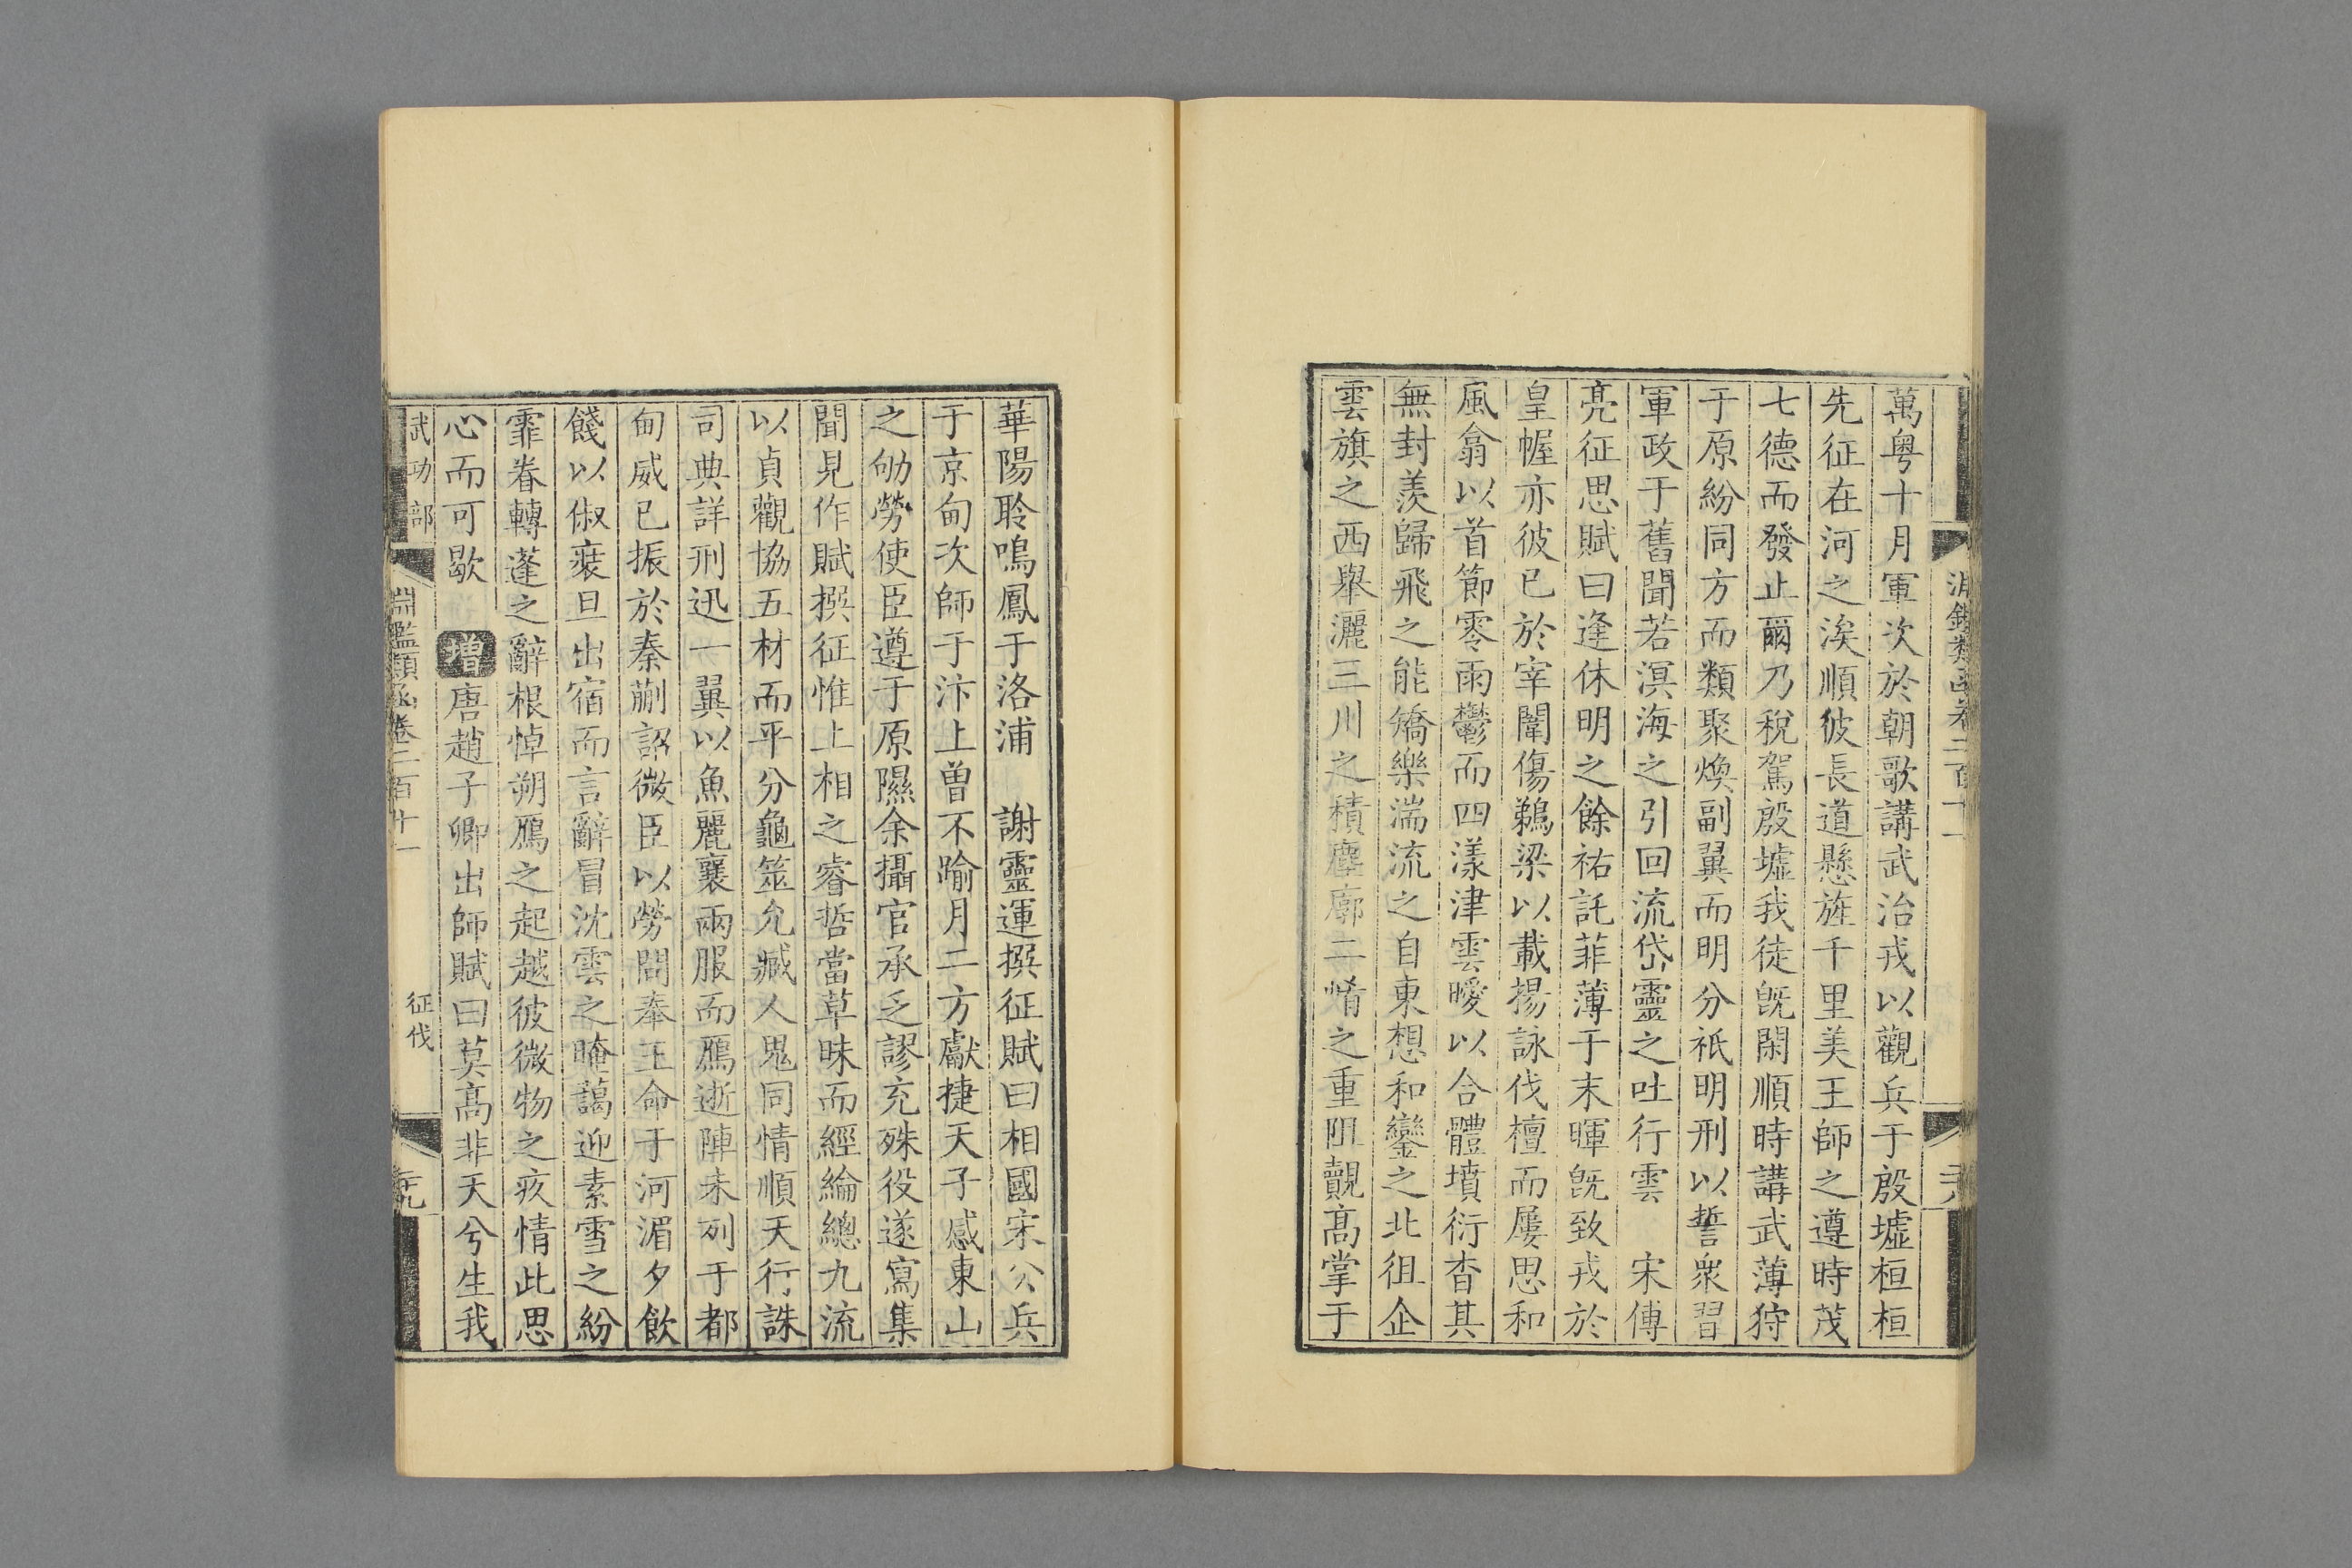 萬粤十月軍次於朝歌講武治戎以觀兵于殷墟桓桓
先征在河之涘順彼長道懸旌千里美王師之遵時茂
七德而發止爾乃稅駕殷墟我徒旣閑順時講武薄狩
于原紛同方而類聚煥副翼而明分祇明刑以誓衆習
軍政于舊聞若溟海之引回流岱靈之吐行雲　宋傅
亮征思賦曰逢休明之餘祐託菲薄于末暉旣致戎於
皇幄亦彼已於宰闈傷鵜梁以載揚詠伐檀而屢思和
風翕以首節零雨鬱而四漾津雲曖以合體墳衍杳其
無封羨歸飛之能矯樂湍流之自東想和鑾之北徂企
雲旗之西舉灑三川之積塵廓二崤之重阻覿高掌于
華陽聆鳴鳳于洛浦　謝靈運撰征賦曰相國宋公兵
于京甸次師于汴上曾不踰月二方獻捷天子感東山
之劬勞使臣遵于原隰余攝官承乏謬充殊役遂寫集
聞見作賦撰征惟上相之睿哲當草昧而經綸總九流
以貞觀協五材而平分龜筮允臧人鬼同情順天行誅
司典詳刑迅一翼以魚麗襄兩服而鴈逝陣未列于都
甸威已振於秦蒯詔微臣以勞問奉王命于河湄夕飲
餞以俶裝旦出宿而言辭冒沈雲之晻藹迎素雪之紛
霏眷轉蓬之辭根悼朔鴈之起越彼微物之疚情此思
心而可歇　增唐趙子卿出師賦曰莫高非天兮生我
武功部　淵鑑類函卷二百十一　征伐　二十九